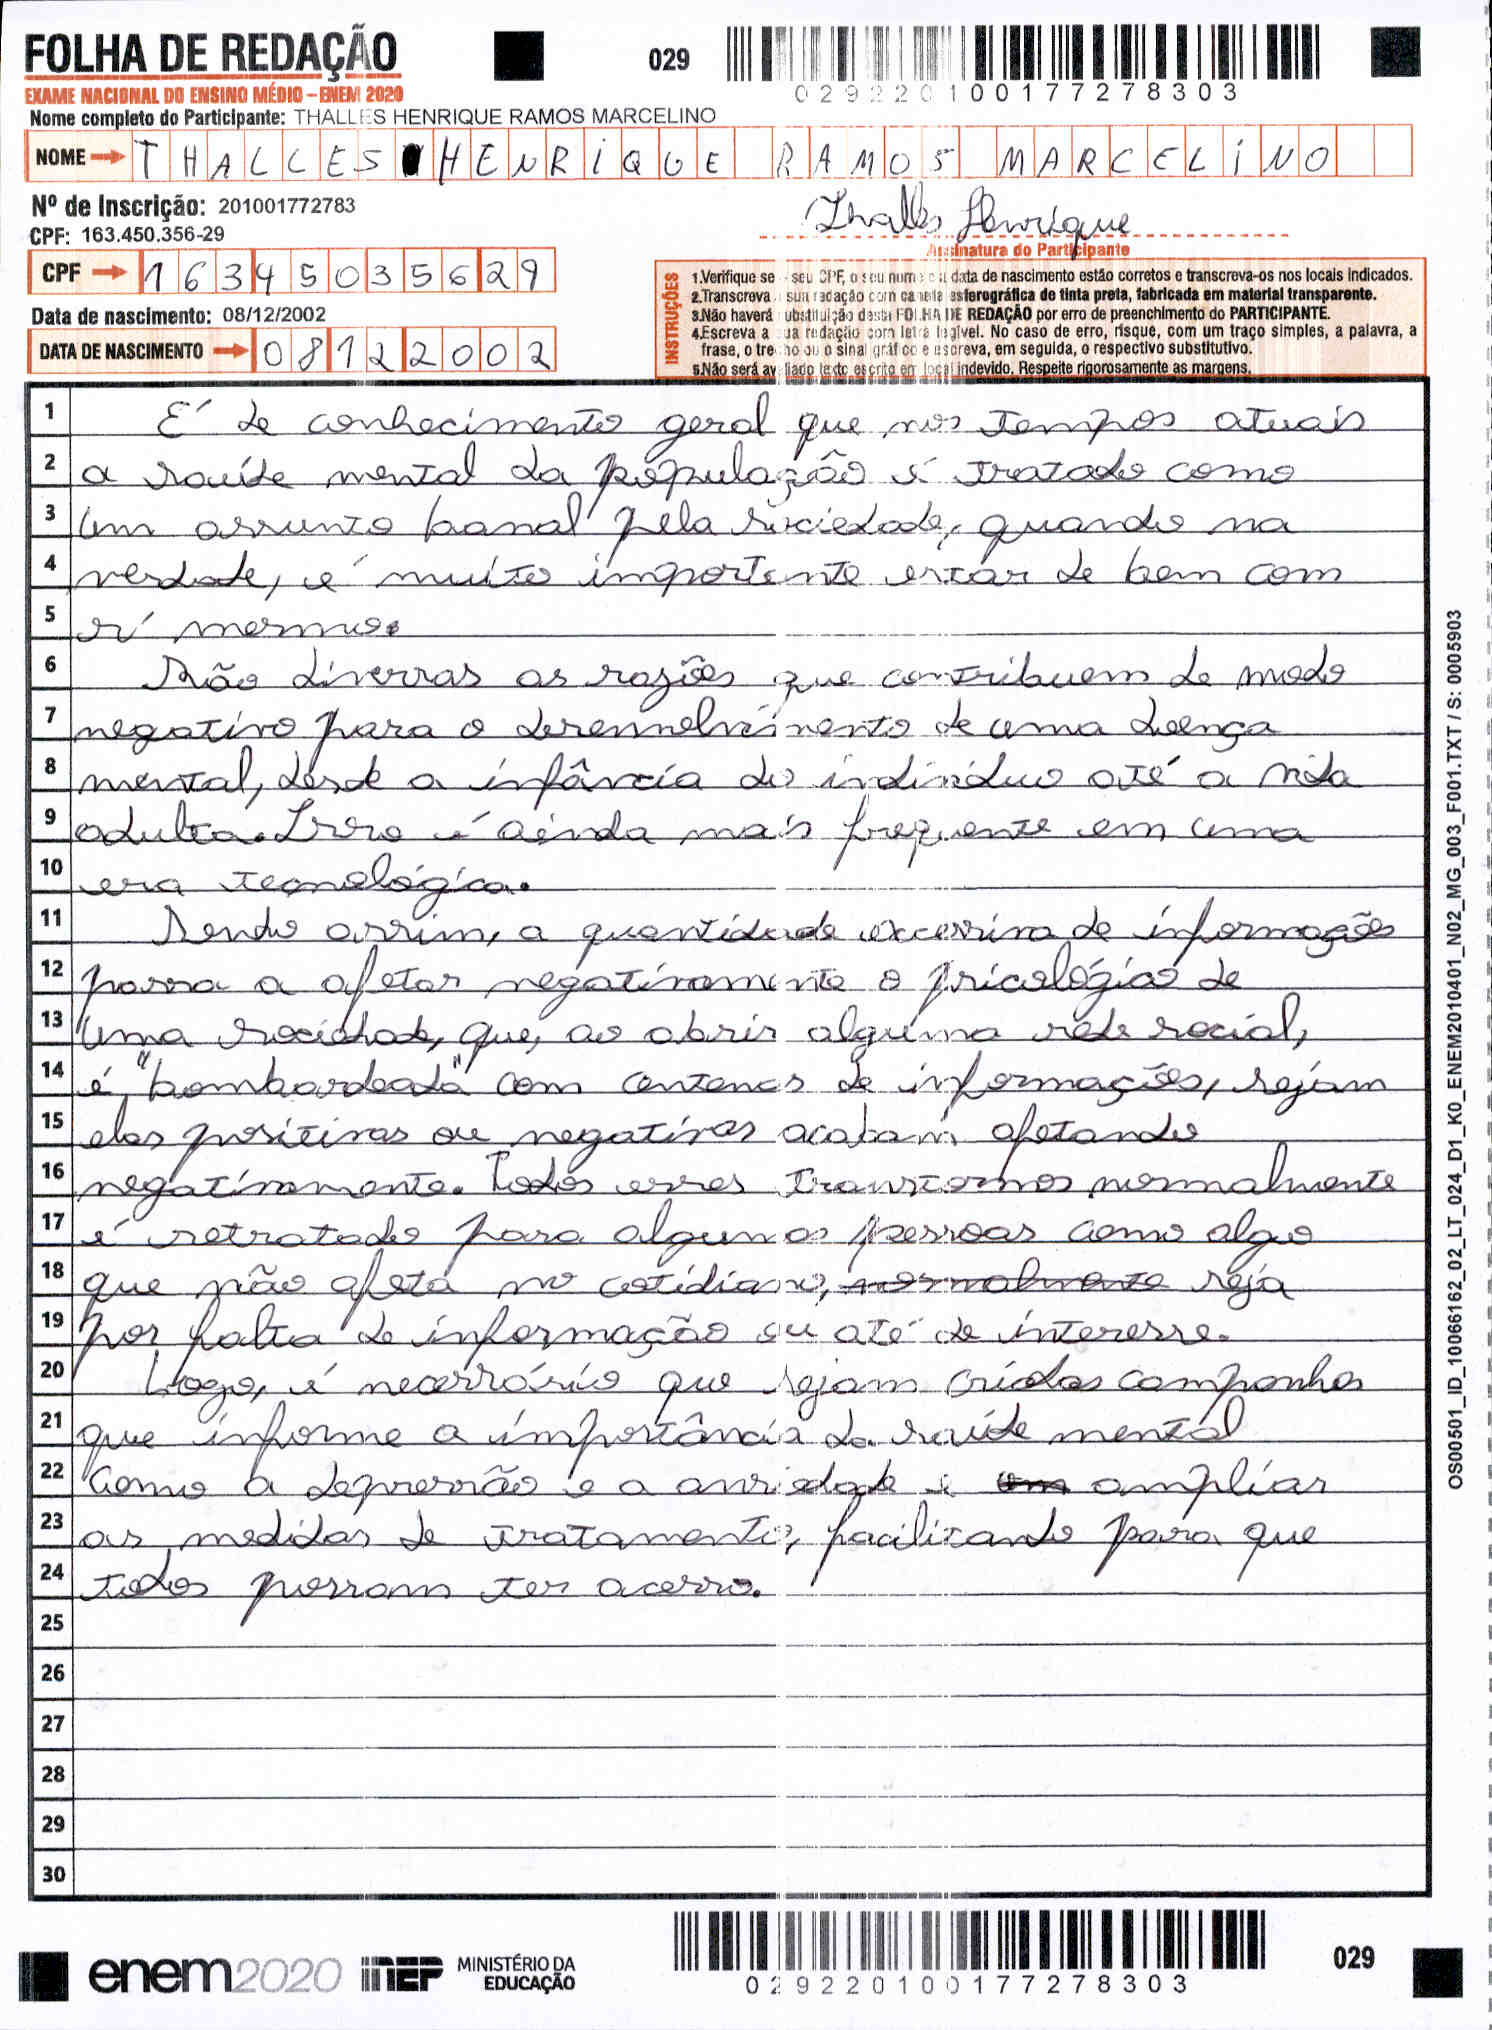 FOLHA DE REDAÇÃO
029
EXAME NACIONAL DO ENSINO MÉDIO – ENEM 2020
029220100177278303
Nome completo do Participante: THALLES HENRIQUE RAMOS MARCELINO
NOME THALLES HENRIQUE RAMOS MARCELINO
Nº de Inscrição: 201001772783
Thalles Henrique
CPF: 163.450.356-29
Assinatura do Participante
CPF 16345035629
Data de nascimento: 08/12/2002
DATA DE NASCIMENTO 08122002
INSTRUÇÕES
1.Verifique se seu CPF, o seu nome e a data de nascimento estão corretos e transcreva-os nos locais indicados.
2.Transcreva sua redação com caneta esferográfica de tinta preta, fabricada em material transparente.
3.Não haverá substituição desta FOLHA DE REDAÇÃO por erro de preenchimento do PARTICIPANTE.
4.Escreva a sua redação com letra legível. No caso de erro, risque, com um traço simples, a palavra, a
frase, o trecho ou o sinal gráfico e escreva, em seguida, o respectivo substitutivo.
5.Não será avaliado texto escrito em local indevido. Respeite rigorosamente as margens.
1 É de conhecimento geral que nos tempos atuais
2 a saúde mental da população é tratado como
3 um assunto banal pela sociedade, quando na
4 verdade, é muito importante estar de bem com
5 sí mesmo.
6 São diversas as razões que contribuem de modo
7 negativo para o desenvolvimento de uma doença
8 mental, desde a infância do indivíduo até a vida
9 adulta. Isso é ainda mais frequente em uma
10 era tecnológica.
11 Sendo assim, a quantidade excessiva de informações
12 passa a afetar negativamente o psicológico de
13 uma sociedade, que, ao abrir alguma rede social,
14 é "bombardeada" com centenas de informações, sejam
15 elas positivas ou negativas acabam afetando
16 negativamente. Todos esses transtornos normalmente
17 é retratado para algumas pessoas como algo
18 que não afeta no cotidiano, normalmente seja
19 por falta de informação ou até de interesse.
20 Logo, é necessário que sejam criadas campanhas
21 que informe a importância da saúde mental
22 como a depressão e a ansiedade e um ampliar
23 as medidas de tratamento, facilitando para que
24 todos possam ter acesso.
25
26
27
28
29
30
OS00501_ID_10066162_02_LT_024_D1_K0_ENEM2010401_N02_MG_003_F001.TXT / S: 0005903
enem2020 INEP MINISTÉRIO DA EDUCAÇÃO
029220100177278303
029